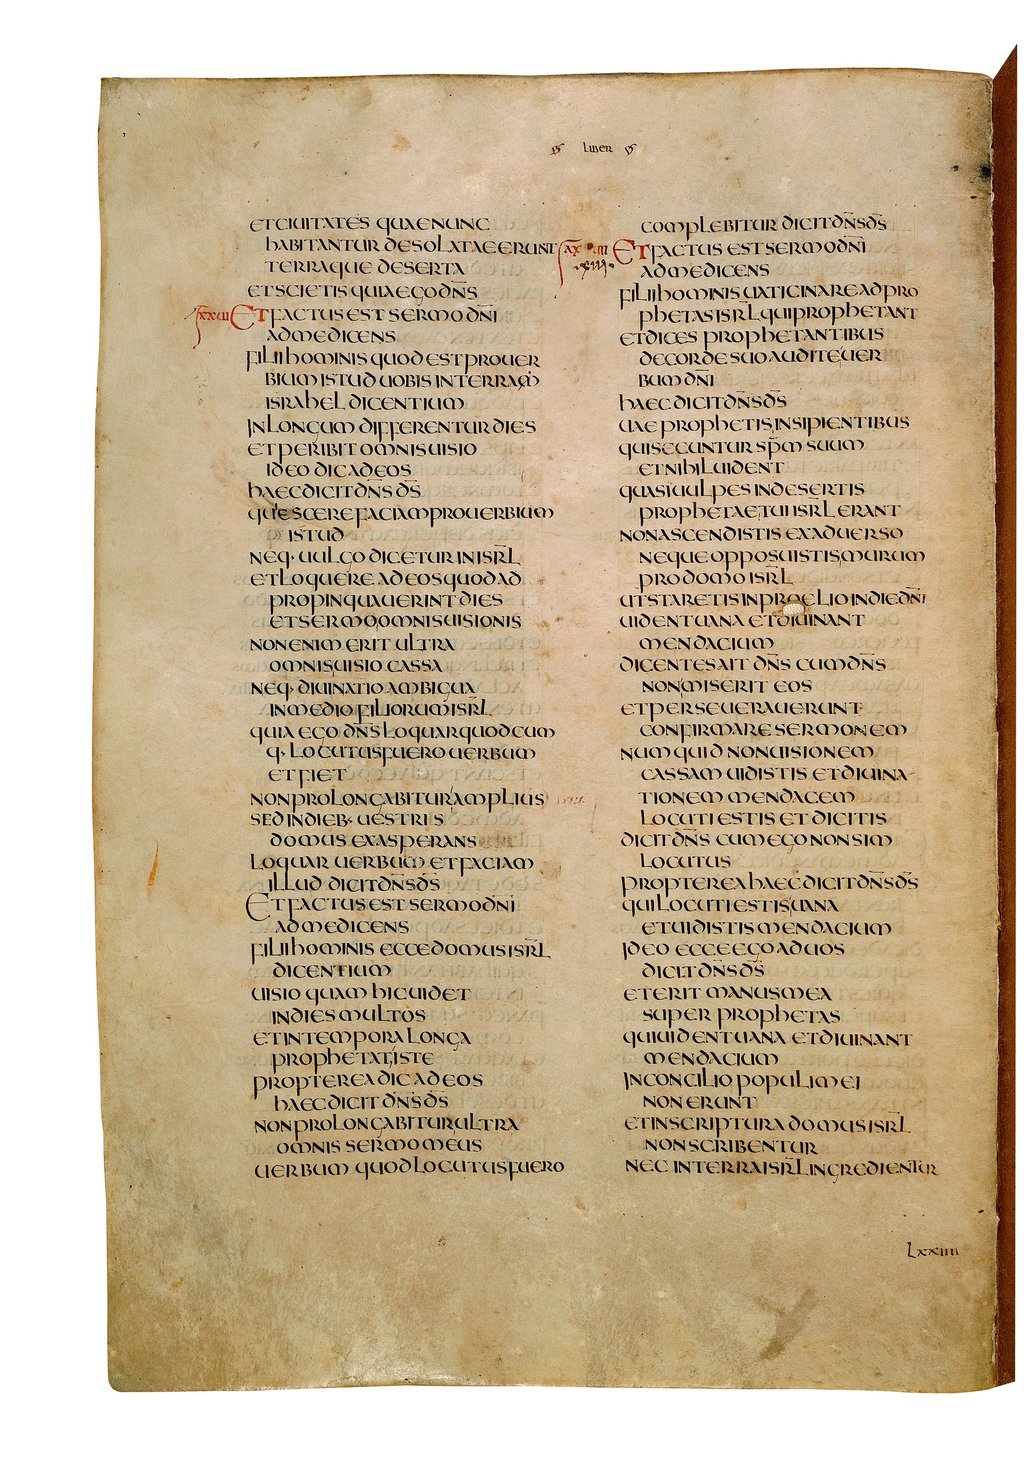 LIBER
ETCIUITATES QUAENUNC
HABITANTUR DESOLATAEERUNT
TERRAQUE DESERTA
ETSCIETIS QUIAEGODN̄S
XXUI ETFACTUS EST SERMO DN̄I
ADMEDICENS
FILIIHOMINIS QUOD EST PROUER
BIUM ISTUD UOBIS INTERRAM
ISRAHEL DICENTIUM
INLONGUM DIFFERENTUR DIES
ETPERIBIT OMNIS UISIO
IDEO DICADEOS
HAECDICIT DN̄S DS̄
QUIESCERE FACIAMPROUERBIUM
ISTUD
NEQ· UULGO DICETUR INISRL̄
ETLOQUERE ADEOSQUODAD
PROPINQUAUERINT DIES
ETSERMO,OMNISUISIONIS
NONENIM ERIT ULTRA
OMNISUISIO CASSA
NEQ· DIUINATIO AMBIGUA
INMEDIO FILIORUM ISRL̄
QUIA EGO DN̄S LOQUARQUODCUM
Q· LOCUTUSFUERO UERBUM
ETFIET
NONPROLONGABITUR AMPLIUS
SEDINDIEB· UESTRIS
DOMUS EXASPERANS
LOQUAR UERBUM ETFACIAM
ILLUD DICITDN̄SDS̄
ETFACTUS EST SERMODN̄I
ADMEDICENS
FILIIHOMINIS ECCEDOMUSISRL̄
DICENTIUM
UISIO QUAM HICUIDET
INDIES MULTOS
ETINTEMPORA LONGA
PROPHETAT,ISTE
PROPTEREADICADEOS
HAECDICIT DN̄SDS̄
NONPROLONGABITURULTRA
OMNIS SERMOMEUS
UERBUM QUODLOCUTUSFUERO
COMPLEBITUR DICITDN̄SDS̄
ETFACTUS ESTSERMODN̄I
ADMEDICENS
FILIIHOMINIS UATICINAREADPRO
PHETASISRL̄QUIPROPHETANT
ETDICES PROPHETANTIBUS
DECORDESUOAUDITEUER
BUMDN̄I
HAECDICITDN̄SDS̄
UAEPROPHETIS,INSIPIENTIBUS
QUISECUNTURSPM̄ SUUM
ETNIHILUIDENT
QUASIUULPES INDESERTIS
PROPHETAETUI ISRL̄ERANT
NONASCENDISTIS EXADUERSO
NEQUEOPPOSUISTISMURUM
PRODOMOISRL̄
UTSTARETISINPROELIOINDIEDN̄I
UIDENTUANA ETDIUINANT
MENDACIUM
DICENTESAIT DN̄S CUMDN̄S
NONMISERIT EOS
ETPERSEUERAUERUNT
CONFIRMARESERMONEM
NUMQUID NONUISIONEM
CASSAM UIDISTIS ETDIUINA
TIONEM MENDACEM
LOCUTIESTIS ETDICITIS
DICITDN̄S CUMEGONONSIM
LOCUTUS
PROPTEREAHAECDICITDN̄SDS̄
QUILOCUTIESTIS,UANA
ETUIDISTIS MENDACIUM
IDEO ECCEEGOADUOS
DICITDN̄SDS̄
ETERIT MANUSMEA
SUPER PROPHETAS
QUIUIDENTUANA ETDIUINANT
MENDACIUM
INCONCILIO POPULIMEI
NONERUNT
ETINSCRIPTURADOMUSISRL̄
NONSCRIBENTUR
NEC INTERRAISRL̄INGREDIENTUR
LXXIIII